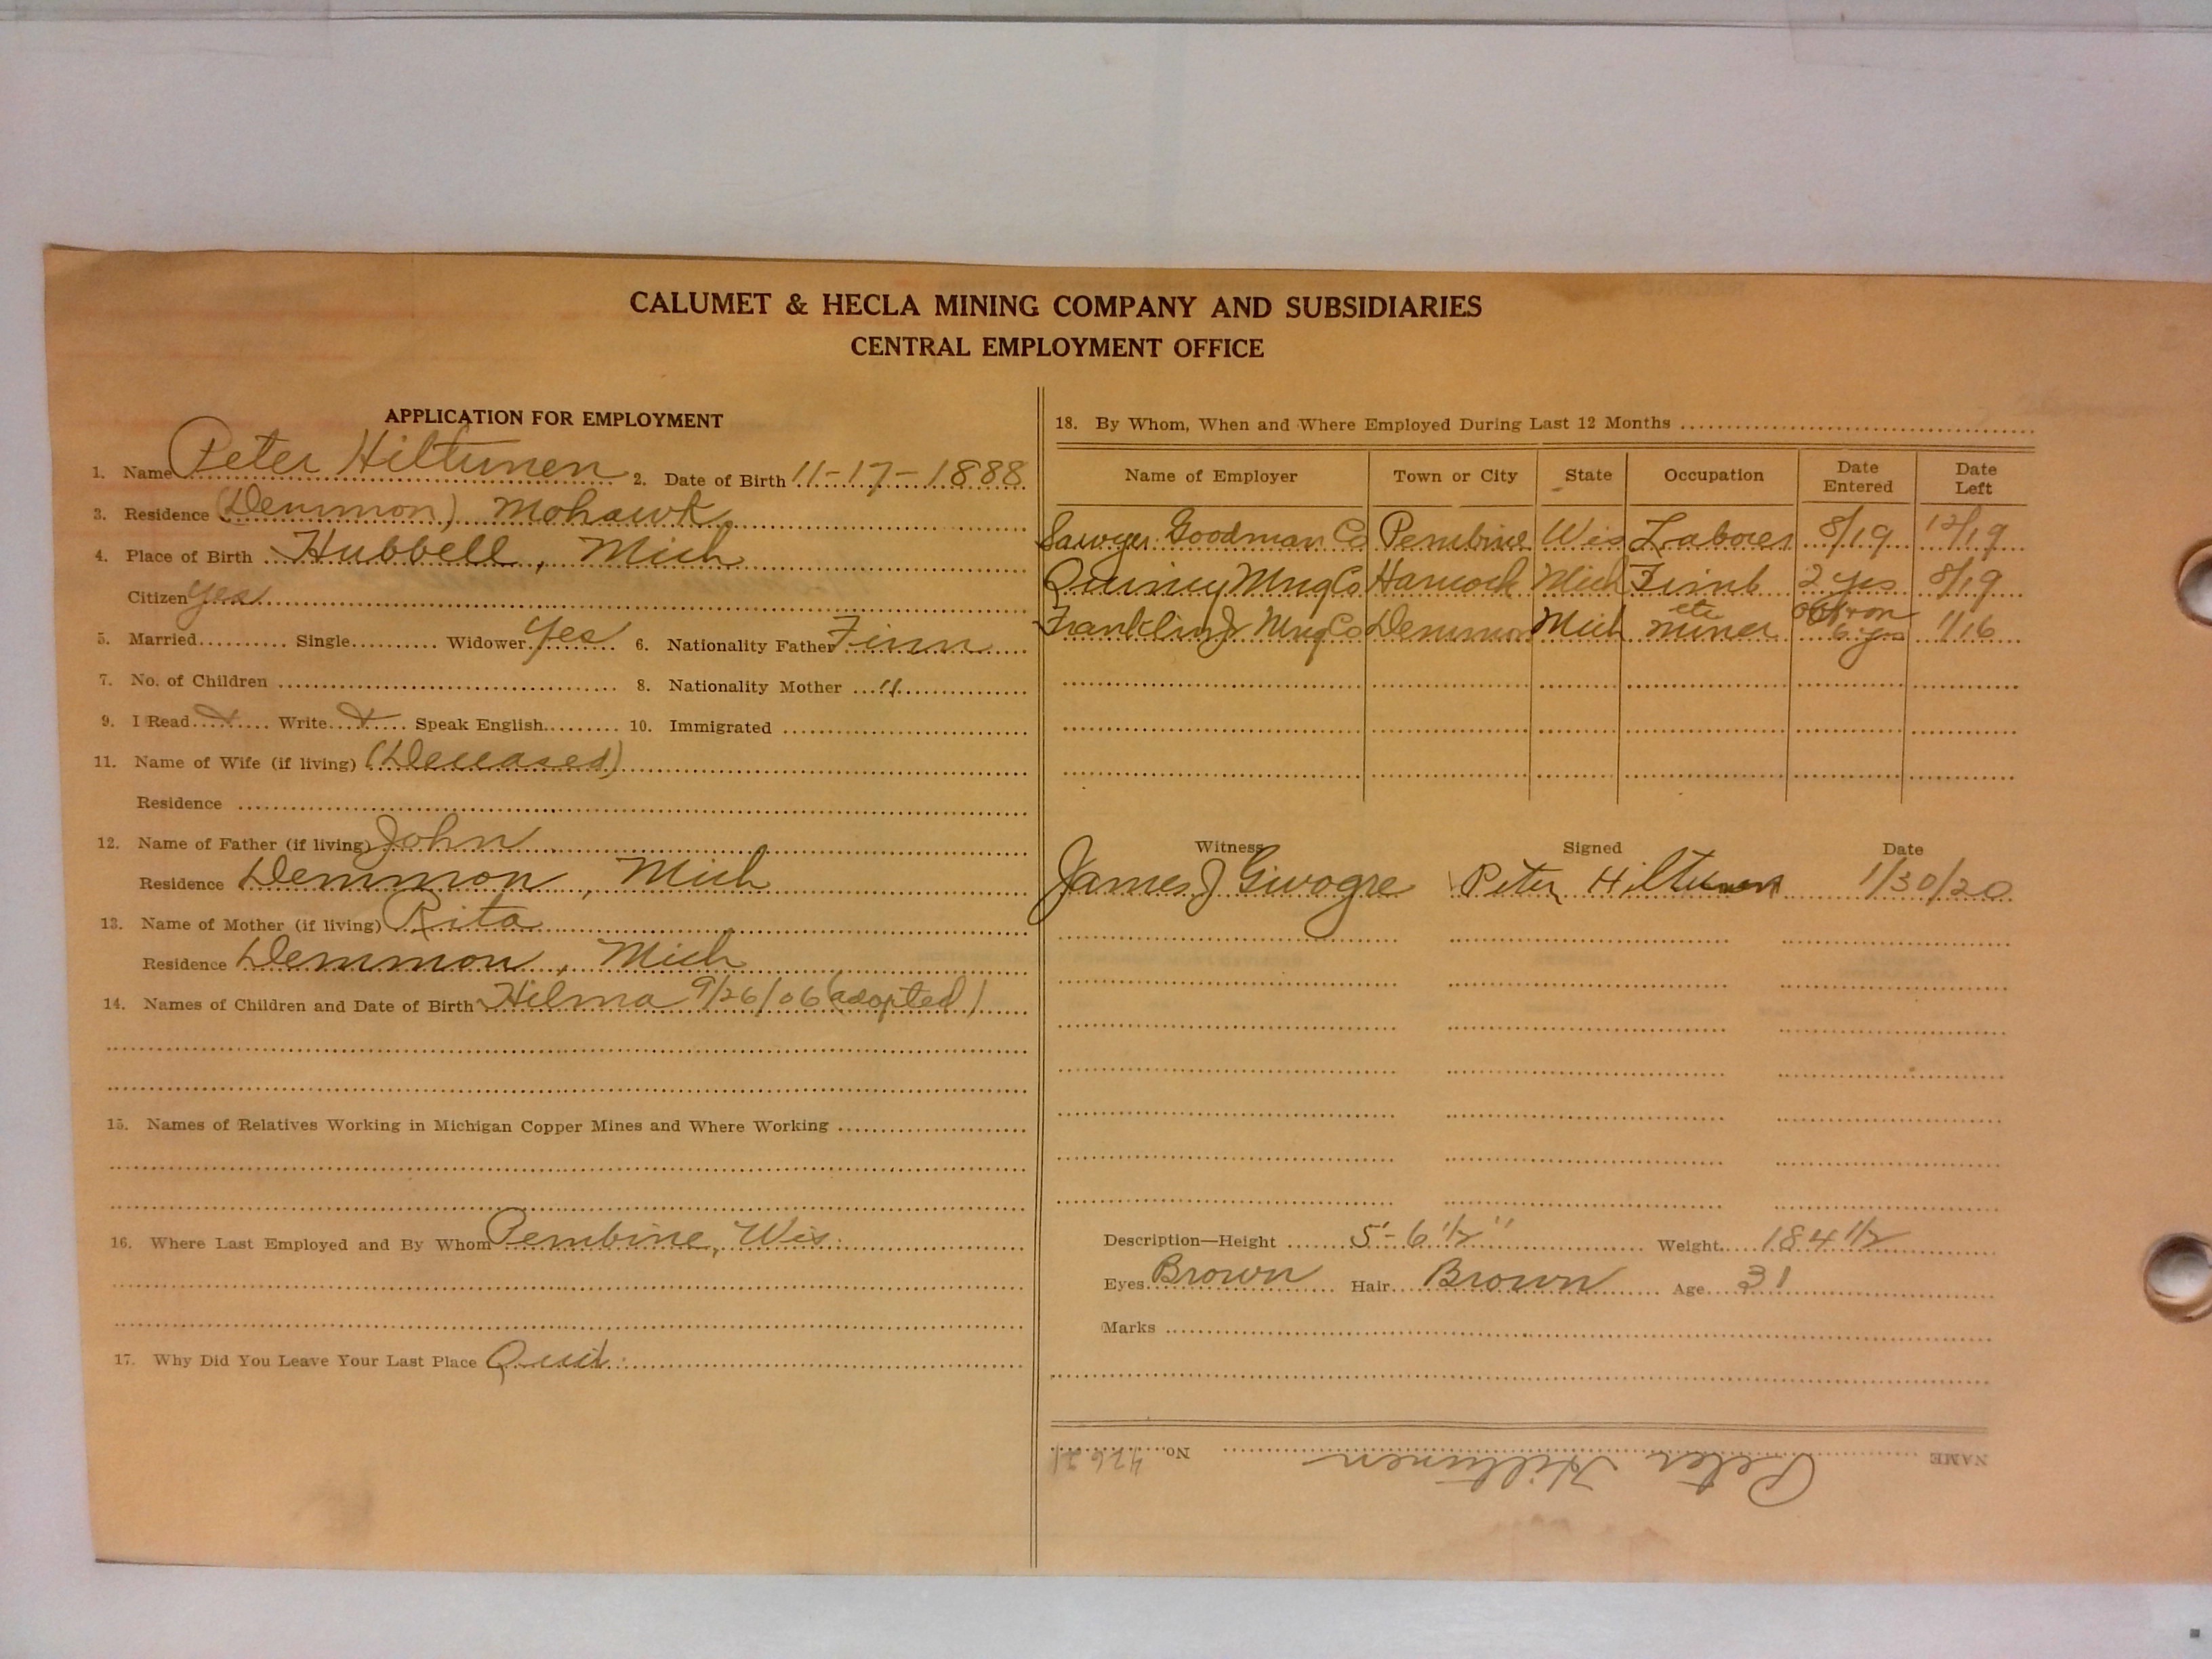 CALUMET & HECLA MINING COMPANY AND SUBSIDIARIES
CENTRAL EMPLOYMENT OFFICE
APPLICATION FOR EMPLOYMENT
1. Name Peter Hiltunen 2. Date of Birth 11-17-1888
3. Residence (Demmon) Mohawk
4. Place of Birth Hubbell, Mich
Citizen yes
5. Married Single Widower yes 6. Nationality Father Finn
7. No. of Children 8. Nationality Mother "
9. I Read X Write X Speak English 10. Immigrated
11. Name of Wife (if living) (Deceased)
Residence
12. Name of Father (if living) John
Residence Demmon, Mich
13. Name of Mother (if living) Rita
Residence Demmon, Mich
14. Names of Children and Date of Birth Hilma 9/26/06 (adopted)
15. Names of Relatives Working in Michigan Copper Mines and Where Working
16. Where Last Employed and By Whom Pembine, Wis.
17. Why Did You Leave Your Last Place Quit
18. By Whom, When and Where Employed During Last 12 Months
Name of Employer Town or City State Occupation Date Entered Date Left
Sawyer Goodman Co Pembine Wis Laborer 8/19 12/19
Quincy Mng Co Hancock Mich Timb 2 yrs 8/19
etc off & on
Franklin Jr Mng Co Demmon Mich miner 6 yrs 1/16
Witness Signed Date
James J Peter Hiltunen 1/30/20
Description—Height 5'-6 1/2" Weight 184 1/2
Eyes Brown Hair Brown Age 31
Marks
NAME Peter Hiltunen No.